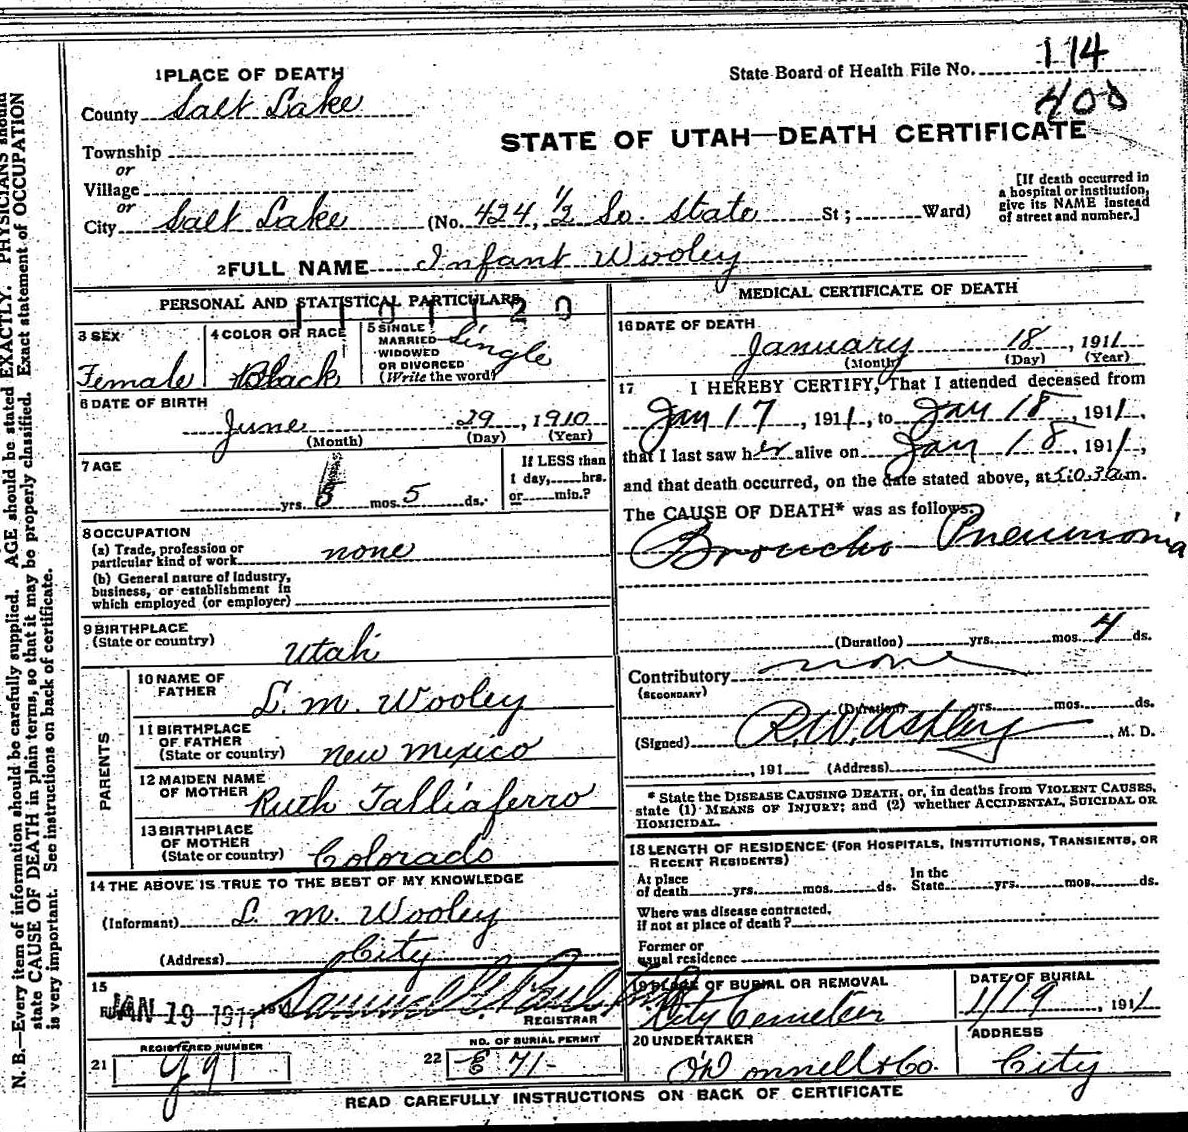 1 PLACE OF DEATH
State Board of Health File No. 114
County Salt Lake
400
STATE OF UTAH—DEATH CERTIFICATE
Township
or
Village
or
City Salt Lake (No. 424, 1/2 So. State St; Ward)
[If death occurred in a hospital or institution, give its NAME instead of street and number.]
2 FULL NAME Infant Wooley
PERSONAL AND STATISTICAL PARTICULARS
3 SEX
Female
4 COLOR OR RACE
Black
5 SINGLE
MARRIED
WIDOWED
OR DIVORCED
(Write the word)
Single
6 DATE OF BIRTH
June 29, 1910
(Month) (Day) (Year)
7 AGE
yrs. mos. 5 ds.
If LESS than
1 day, hrs.
or min.?
8 OCCUPATION
(a) Trade, profession or
particular kind of work none
(b) General nature of industry,
business, or establishment in
which employed (or employer)
9 BIRTHPLACE
(State or country)
Utah
PARENTS
10 NAME OF
FATHER
L. M. Wooley
11 BIRTHPLACE
OF FATHER
(State or country) New Mexico
12 MAIDEN NAME
OF MOTHER
Ruth Talliaferro
13 BIRTHPLACE
OF MOTHER
(State or country) Colorado
14 THE ABOVE IS TRUE TO THE BEST OF MY KNOWLEDGE
(Informant) L. M. Wooley
(Address) City
15
JAN 19 1911
REGISTRAR
REGISTERED NUMBER
21
NO. OF BURIAL PERMIT
22 E 71-
MEDICAL CERTIFICATE OF DEATH
16 DATE OF DEATH
January 18, 1911
(Month) (Day) (Year)
17 I HEREBY CERTIFY, That I attended deceased from
Jan 17, 1911, to Jan 18, 1911,
that I last saw her alive on Jan 18, 1911,
and that death occurred, on the date stated above, at 5:03 a.m.
The CAUSE OF DEATH* was as follows:
Broncho Pneumonia
(Duration) yrs. mos. 4 ds.
Contributory none
(SECONDARY)
(Duration) yrs. mos. ds.
(Signed) R.W. Ashley, M. D.
, 191 (Address)
* State the DISEASE CAUSING DEATH, or, in deaths from VIOLENT CAUSES,
state (1) MEANS OF INJURY; and (2) whether ACCIDENTAL, SUICIDAL OR
HOMICIDAL.
18 LENGTH OF RESIDENCE (FOR HOSPITALS, INSTITUTIONS, TRANSIENTS, OR
RECENT RESIDENTS)
At place
of death yrs. mos. ds.
In the
State yrs. mos. ds.
Where was disease contracted,
if not at place of death?
Former or
usual residence
19 PLACE OF BURIAL OR REMOVAL
City Cemetery
DATE OF BURIAL
1/19, 1911
20 UNDERTAKER
O'Donnell & Co.
ADDRESS
City
READ CAREFULLY INSTRUCTIONS ON BACK OF CERTIFICATE
N. B.—Every item of information should be carefully supplied. AGE should be stated EXACTLY. PHYSICIANS should
state CAUSE OF DEATH in plain terms, so that it may be properly classified. Exact statement of OCCUPATION
is very important. See instructions on back of certificate.